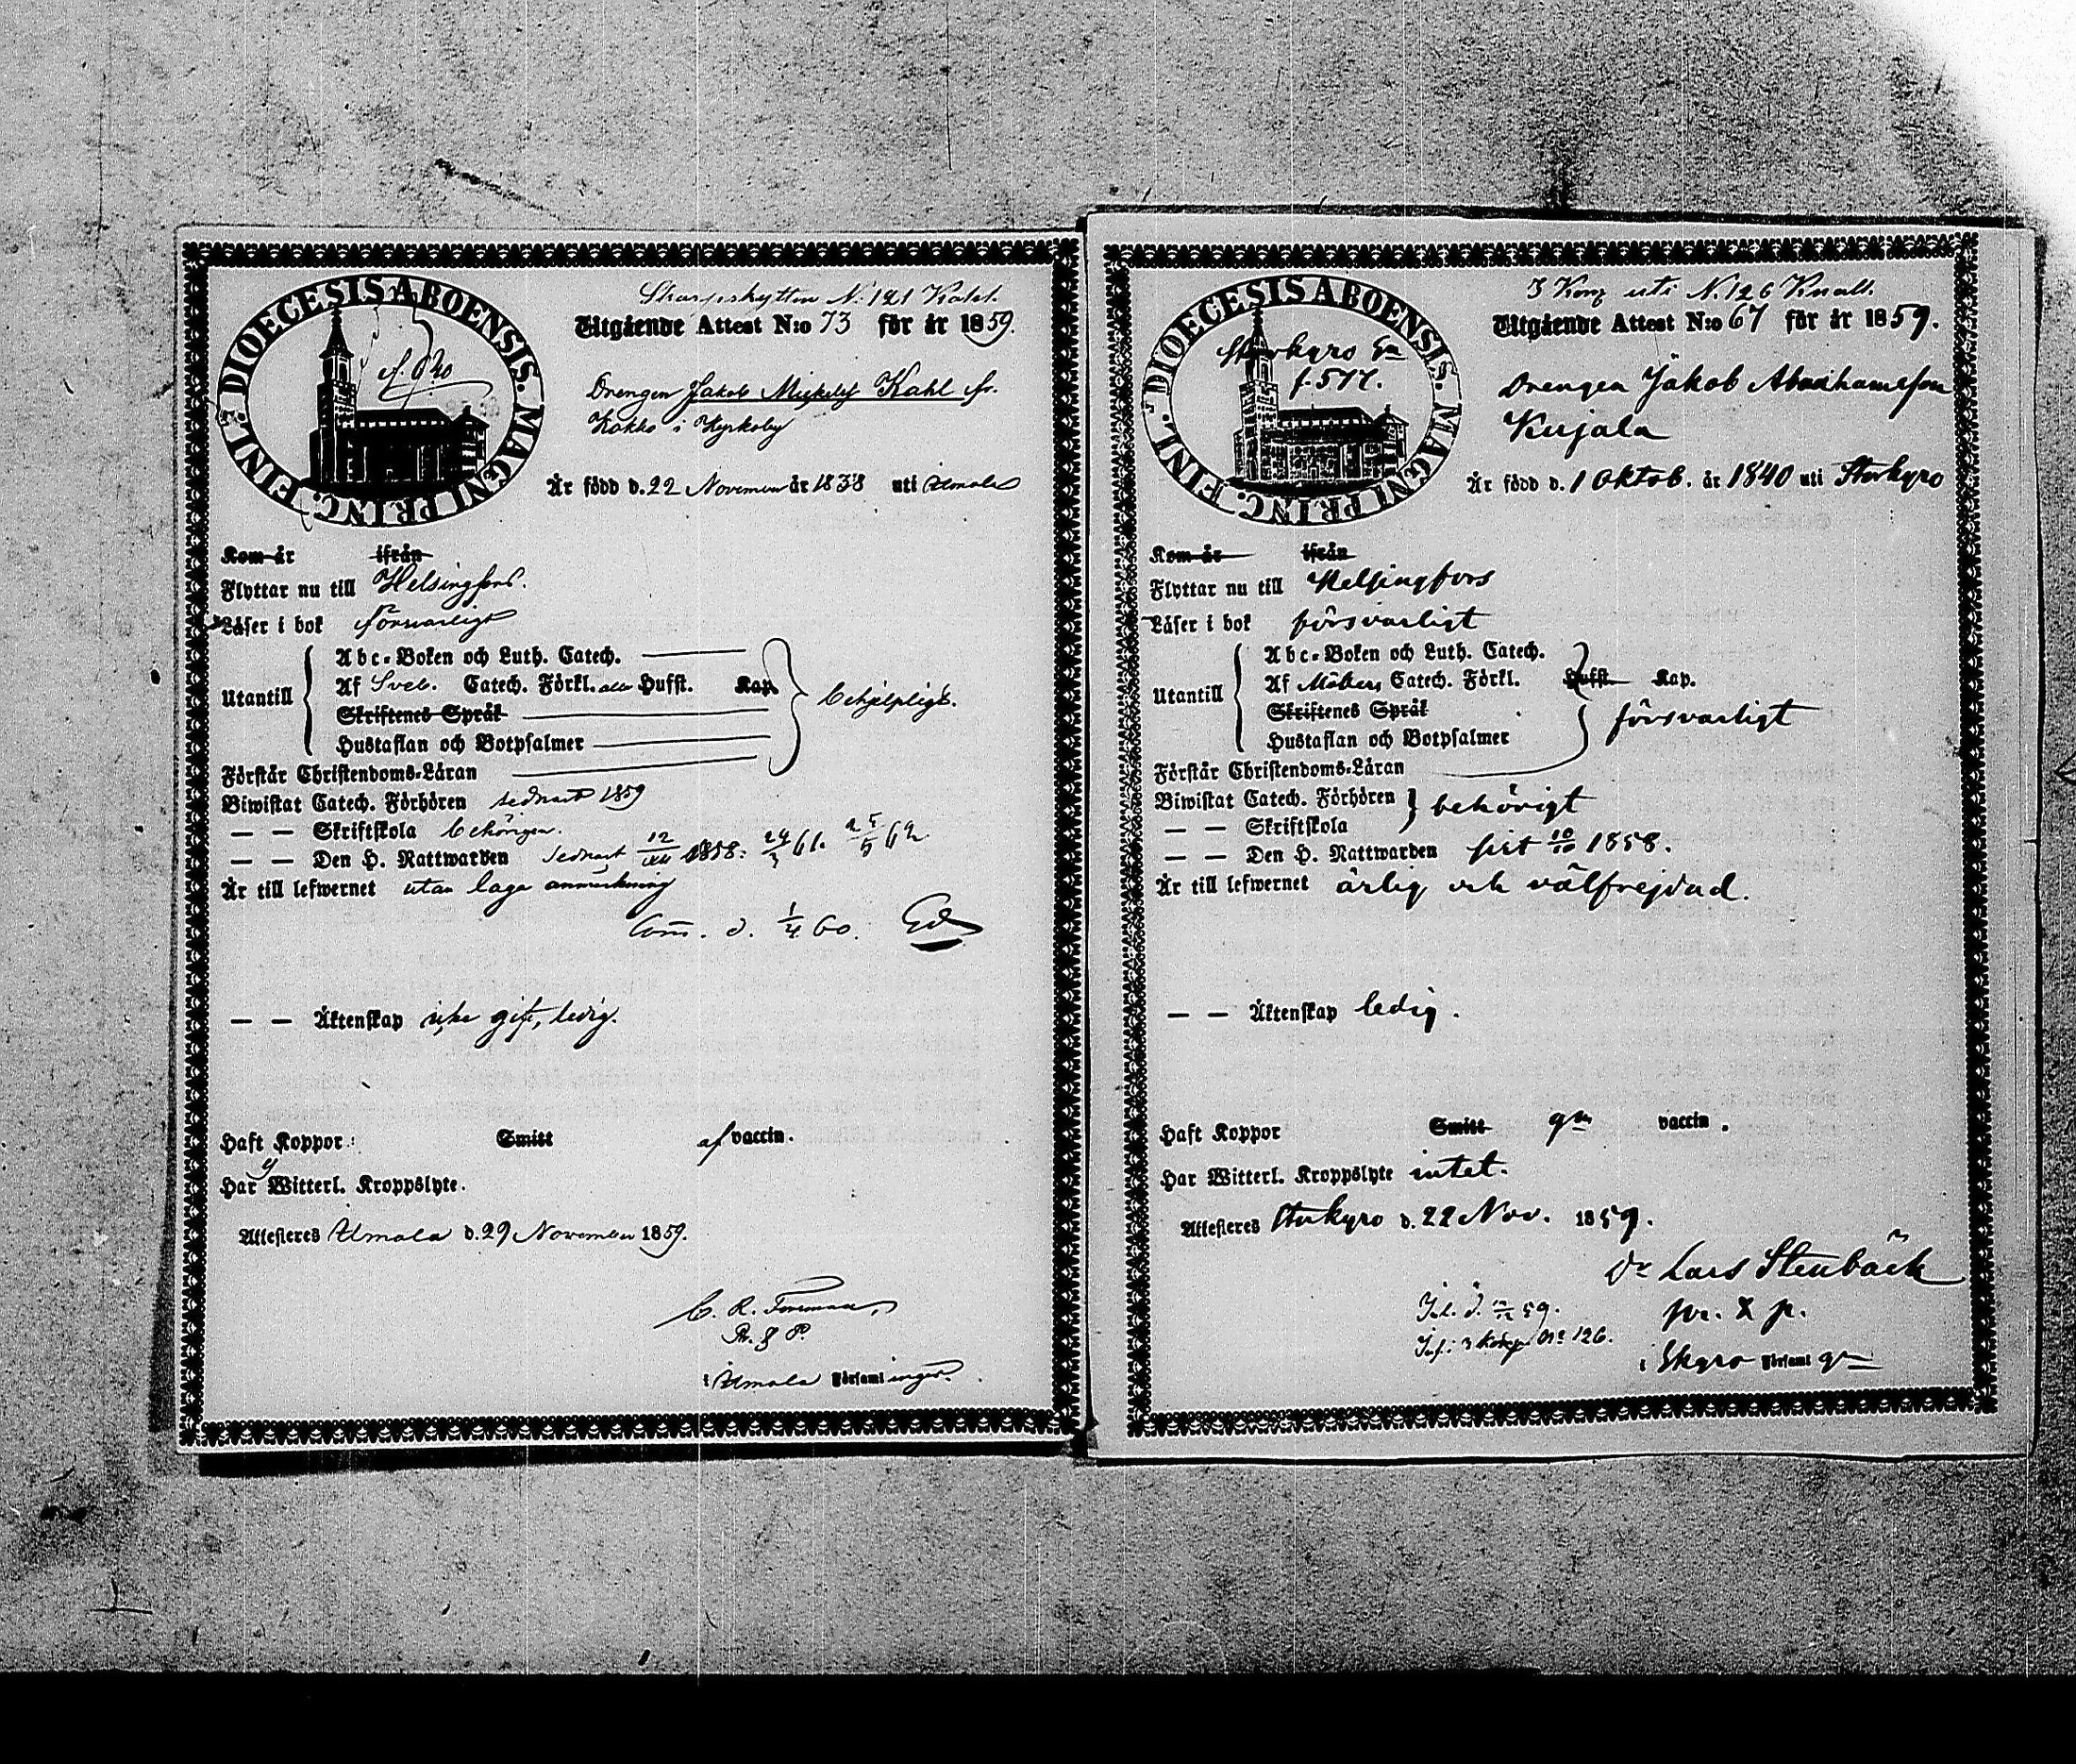 DIOECESIS ABOENSIS. MAGNI PRINC. FINL.
Skarpskytten N: 121 Kahl.
Utgående Attest N:o 73 för år 1859.
Drengen Jakob Mickelss Kahl fr.
Kokko i Kyrkoby
Är född d. 22 November år 1838 uti Ilmola
Kom år ifrån
Flyttar nu till Helsingfors.
Läser i bok försvarligt
Utantill
Abc-Boken och Luth. Catech.
Af Sveb. Catech. Förkl. Hufst. Kap.
behjelpligt.
Skriftenes Språk
Hustaflan och Botpsalmer
Förstår Christendoms-Läran
Biwistat Catech. Förhören sednast 1859
— — Skriftskola behörigen.
— — Den H. Nattwarden sednast 12/XII 1858. 24/3 61. 25/5 62
Är till lefwernet utan laga anmärkning
Com. d. 1/4 60.
— — Äktenskap icke gift, ledig.
Haft Koppor: Smitt af vaccin.
Har ej Witterl. Kroppslyte.
Attesteras Ilmola d. 29 November 1859.
C. R. Forsman
P. & P.
i Ilmola Församlingar.
DIOECESIS ABOENSIS. MAGNI PRINC. FINL.
3 Komp uti N. 126 Knall.
Utgående Attest N:o 67 för år 1859.
Storkyro
f. 517.
Drengen Jakob Abrahamsson
Kujala
Är född d. 1 Oktob. år 1840 uti Storkyro
Kom år ifrån
Flyttar nu till Helsingfors
Läser i bok försvarligt
Utantill
Abc-Boken och Luth. Catech.
Af Möllers Catech. Förkl. Hufst. Kap.
Skriftenes Språk
försvarligt
Hustaflan och Botpsalmer
Förstår Christendoms-Läran
Biwistat Catech. Förhören
behörigt
— — Skriftskola
— — Den H. Nattwarden sist 10/10 1858.
Är till lefwernet ärlig och välfrejdad.
— — Äktenskap ledig.
Haft Koppor Smitt gm vaccin.
Har Witterl. Kroppslyte intet.
Attesteras Storkyro d. 22 Nov. 1859.
Dr Lars Stenbäck
pr. & p.
i Skyro Församl gn
Inl. d. 59.
Inf. i 3 Komp. No 126.